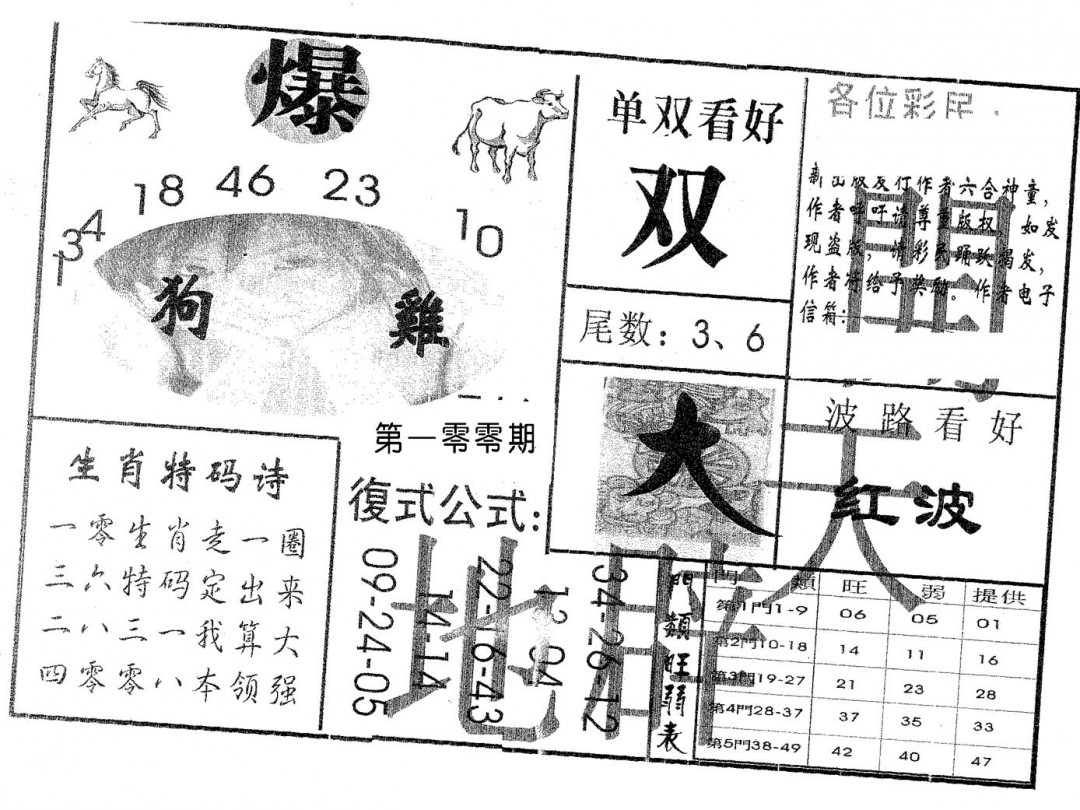 爆
18 46 23
34
1
10
狗 雞
单双看好
双
尾数：3、6
各位彩民
作者呼吁请尊重版权，如发
现盗版，请彩民踊跃揭发，
作者将给予奖励。作者电子
信箱：
大
波路看好
红波
第一零零期
復式公式：
09-24-05
14-14
22-16-43
12-04
34-26-12
生肖特码诗
一零生肖走一圈
三六特码定出来
二八三一我算大
四零零八本领强
門類旺弱表
門類 旺 弱 提供
第1門1-9 06 05 01
第2門10-18 14 11 16
第3門19-27 21 23 28
第4門28-37 37 35 33
第5門38-49 42 40 47